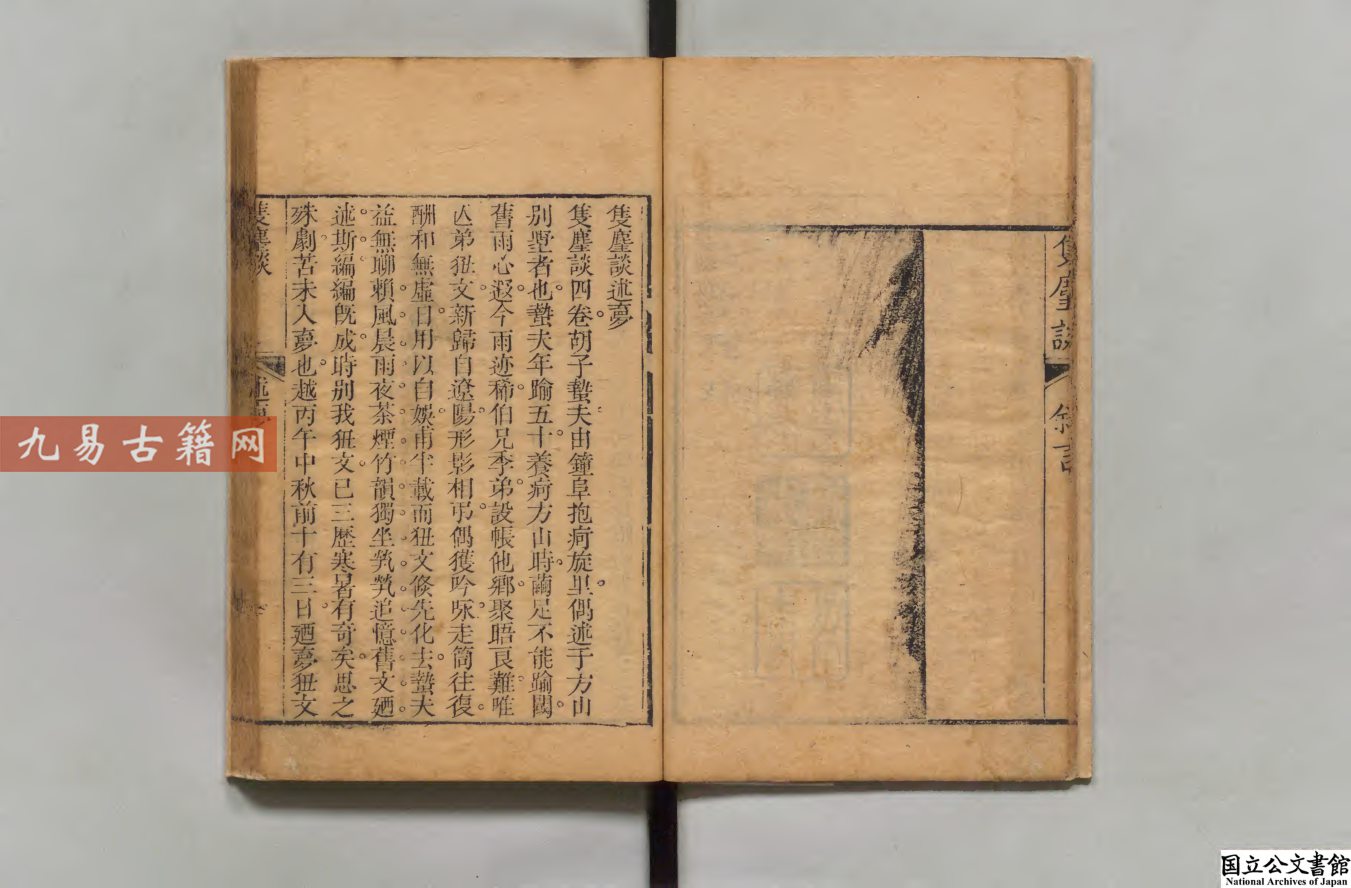 隻麈談
叙言
隻麈談述夢
隻麈談四卷胡子蟄夫由鐘阜抱疴旋里。偶述于方山
别墅者也。蟄夫年踰五十。養疴方山時。繭足不能踰閾。
舊雨心遐。今雨迹稀。伯兄季弟。設帳他鄉。聚晤良難。唯
亾弟狃文新歸自遼陽。形影相弔。偶獲吟咏。走筒往復。
酬和無虛日。用以自娛。甫半載而狃文倐先化去。蟄夫
益無聊賴。風晨雨夜。茶煙竹韻。獨坐煢煢。追憶舊文。廼
述斯編。編既成時。别我狃文。已三歷寒暑有奇矣。思之
殊劇苦未入夢也。越丙午中秋前十有三日。廼夢狃文
隻麈談
述夢
九易古籍网
国立公文書館
National Archives of Japan